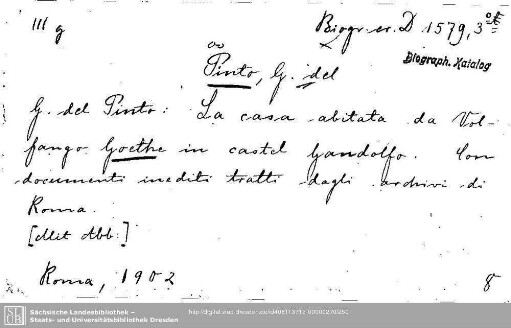 III g
Biogr. er. D 1579, 3
Biograph. Katalog
Pinto, G. del
G. del Pinto: La casa abitata da Vol-
fango Goethe in castel Gandolfo. Con
documenti inediti tratti dagli archivi di
Roma.
[Mit Abb.]
Roma, 1902
8
SLUB
Sächsische Landesbibliothek –
Staats- und Universitätsbibliothek Dresden